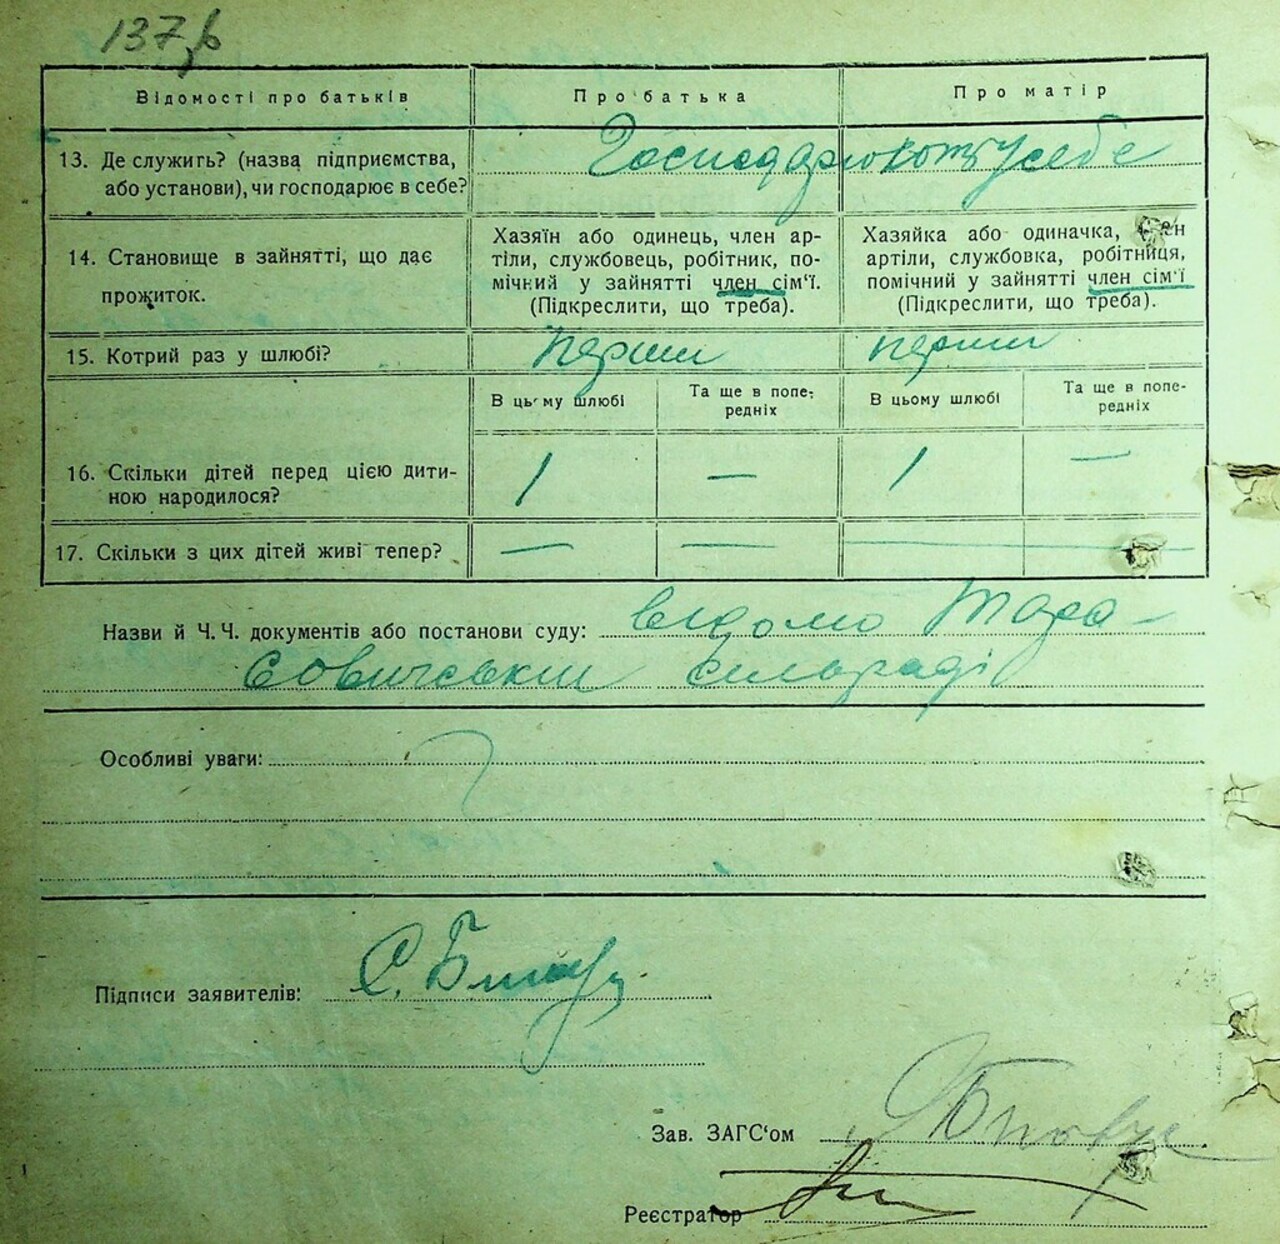 137 в
Відомості про батьків Про батька Про матір
13. Де служить? (назва підприємства, Господарюють у себе
або установи), чи господарює в себе?
14. Становище в зайнятті, що дає прожиток.
Хазяїн або одинець, член ар-
тіли, службовець, робітник, по-
мічний у зайнятті член сім'ї.
(Підкреслити, що треба).
Хазяйка або одиначка, член
артіли, службовка, робітниця,
помічний у зайнятті член сім'ї
(Підкреслити, що треба).
15. Котрий раз у шлюбі? перши перши
В цьому шлюбі Та ще в попе-редніх В цьому шлюбі Та ще в попе-редніх
16. Скільки дітей перед цією дити- 1 — 1 —
ною народилося?
17. Скільки з цих дітей живі тепер? — — — —
Назви й Ч. Ч. документів або постанови суду: відомо Тара-
совичській сильраді
Особливі уваги:
Підписи заявителів: С.
Зав. ЗАГС'ом
Реєстратор